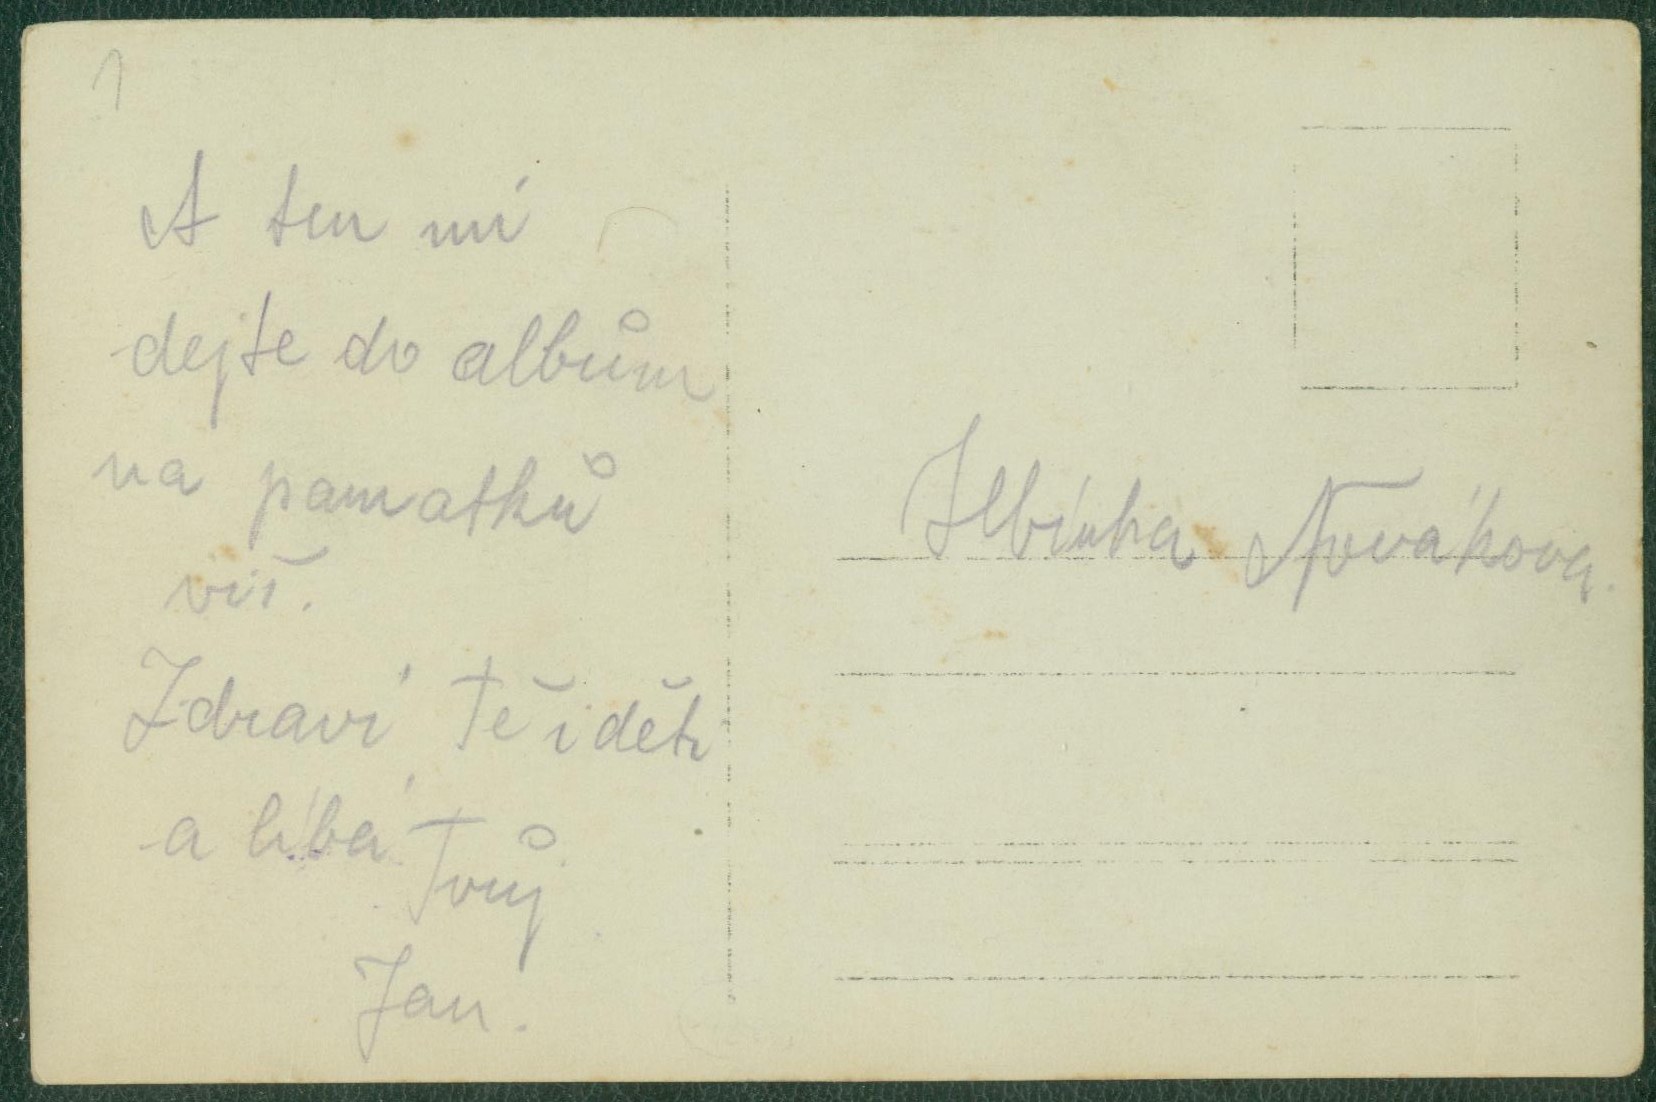 1
A ten mi
dejte do albům
na pamatků
viš.
Zdraví Tě i děti
a líbá Tvůj
Jan.
Albínka Novákova.